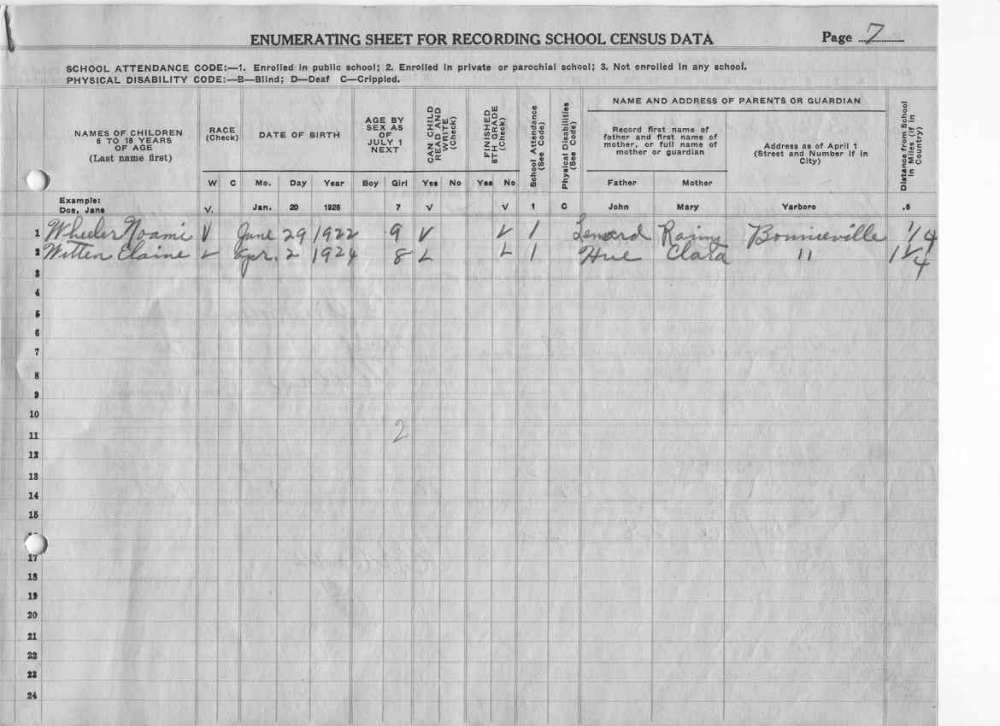 ENUMERATING SHEET FOR RECORDING SCHOOL CENSUS DATA Page 7
SCHOOL ATTENDANCE CODE:—1. Enrolled in public school; 2. Enrolled in private or parochial school; 3. Not enrolled in any school.
PHYSICAL DISABILITY CODE:—B—Blind; D—Deaf C—Crippled.
NAMES OF CHILDREN
6 TO 18 YEARS
OF AGE
(Last name first)
RACE
(Check)
W C
DATE OF BIRTH
Mo. Day Year
AGE BY
SEX AS
OF
JULY 1
NEXT
Boy Girl
CAN CHILD
READ AND
WRITE
(Check)
Yes No
FINISHED
8TH GRADE
(Check)
Yes No
School Attendance
(See Code)
Physical Disabilities
(See Code)
NAME AND ADDRESS OF PARENTS OR GUARDIAN
Record first name of
father and first name of
mother, or full name of
mother or guardian
Father Mother
Address as of April 1
(Street and Number if in
City)
Distance from School
in Miles (if in
County)
Example:
Doe, Jane V. Jan. 20 1925 7 V V 1 C John Mary Yarboro .5
1 Wheeler Noami V June 29 1922 9 V V 1 Lenard Bonnieville 1/4
2 Witten Elaine Apr. 2 1924 8 1 Hue Clara " 1 1/4
3
4
5
6
7
8
9
10
11 2
12
13
14
15
17
18
19
20
21
22
23
24